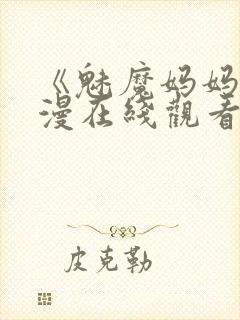 《魅魔妈妈
漫在綫觀看
皮克勒